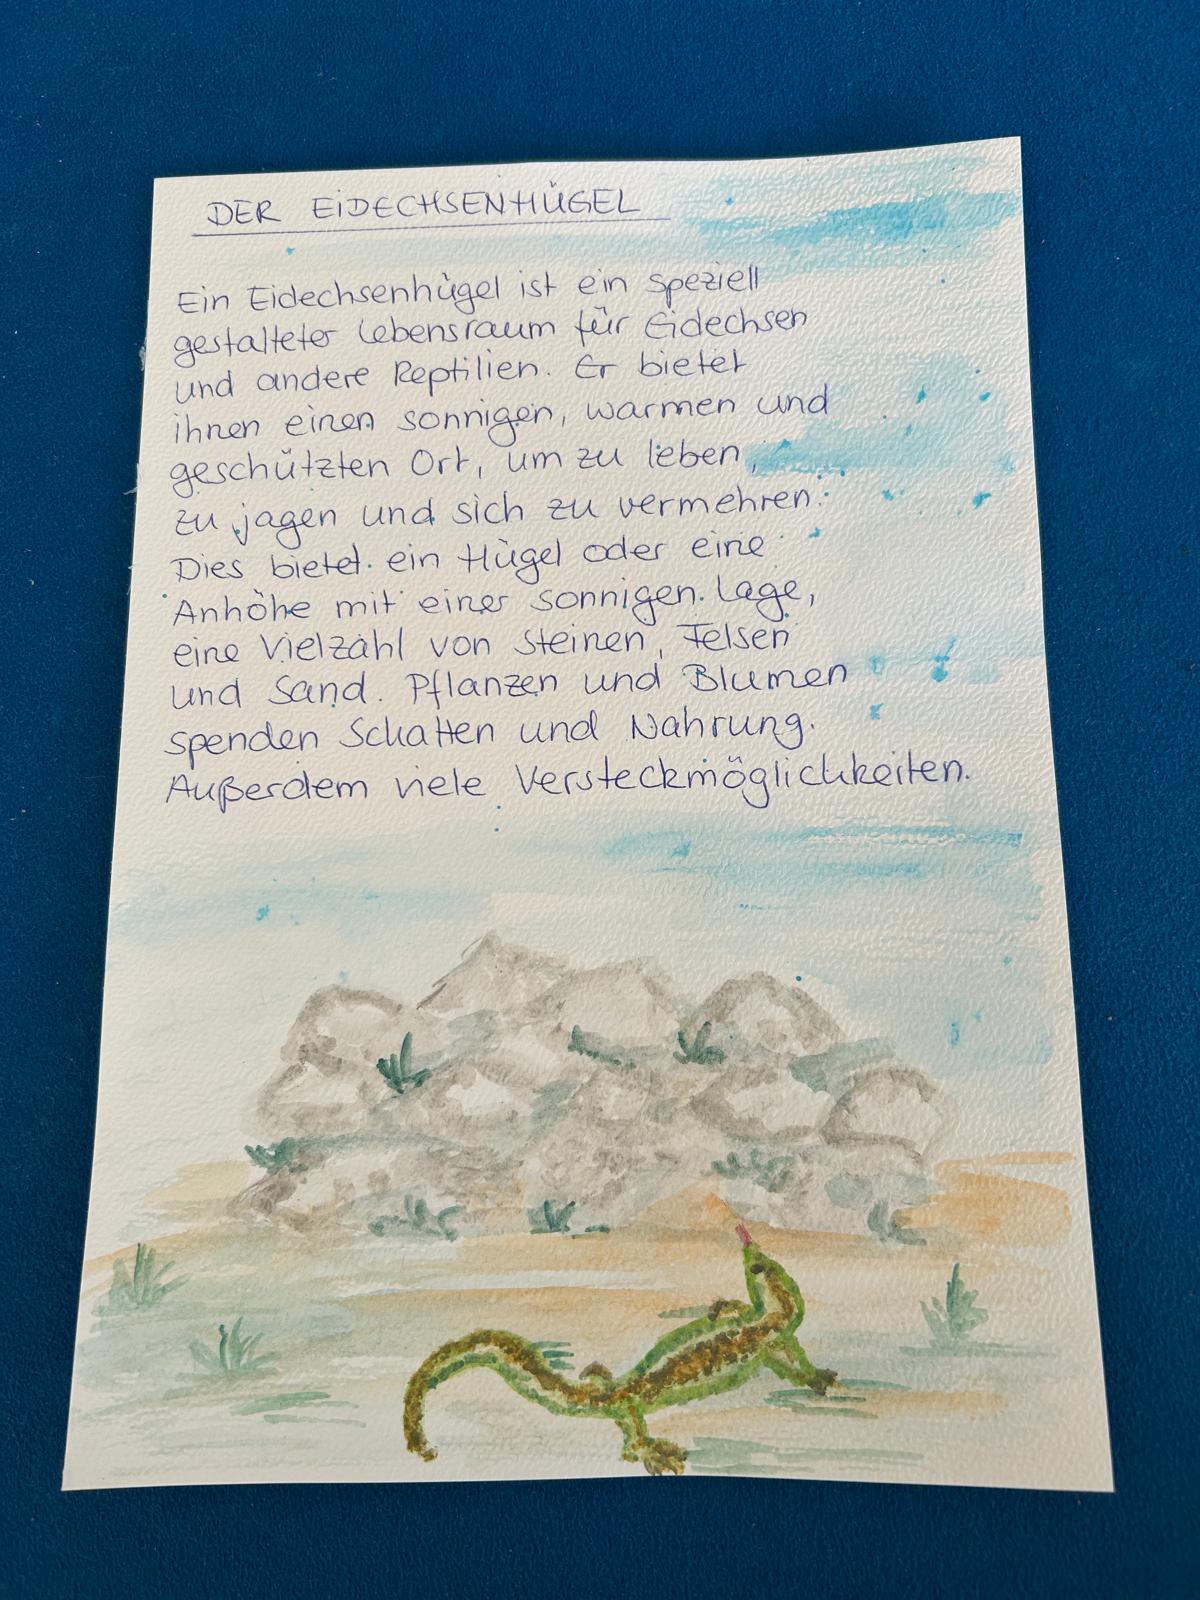 DER EIDECHSENHÜGEL
Ein Eidechsenhügel ist ein speziell
gestalteter Lebensraum für Eidechsen
und andere Reptilien. Er bietet
ihnen einen sonnigen, warmen und
geschützten Ort, um zu leben,
zu jagen und sich zu vermehren.
Dies bietet ein Hügel oder eine
Anhöhe mit einer sonnigen Lage,
eine Vielzahl von Steinen, Felsen
und Sand. Pflanzen und Blumen
spenden Schatten und Nahrung.
Außerdem viele Versteckmöglichkeiten.